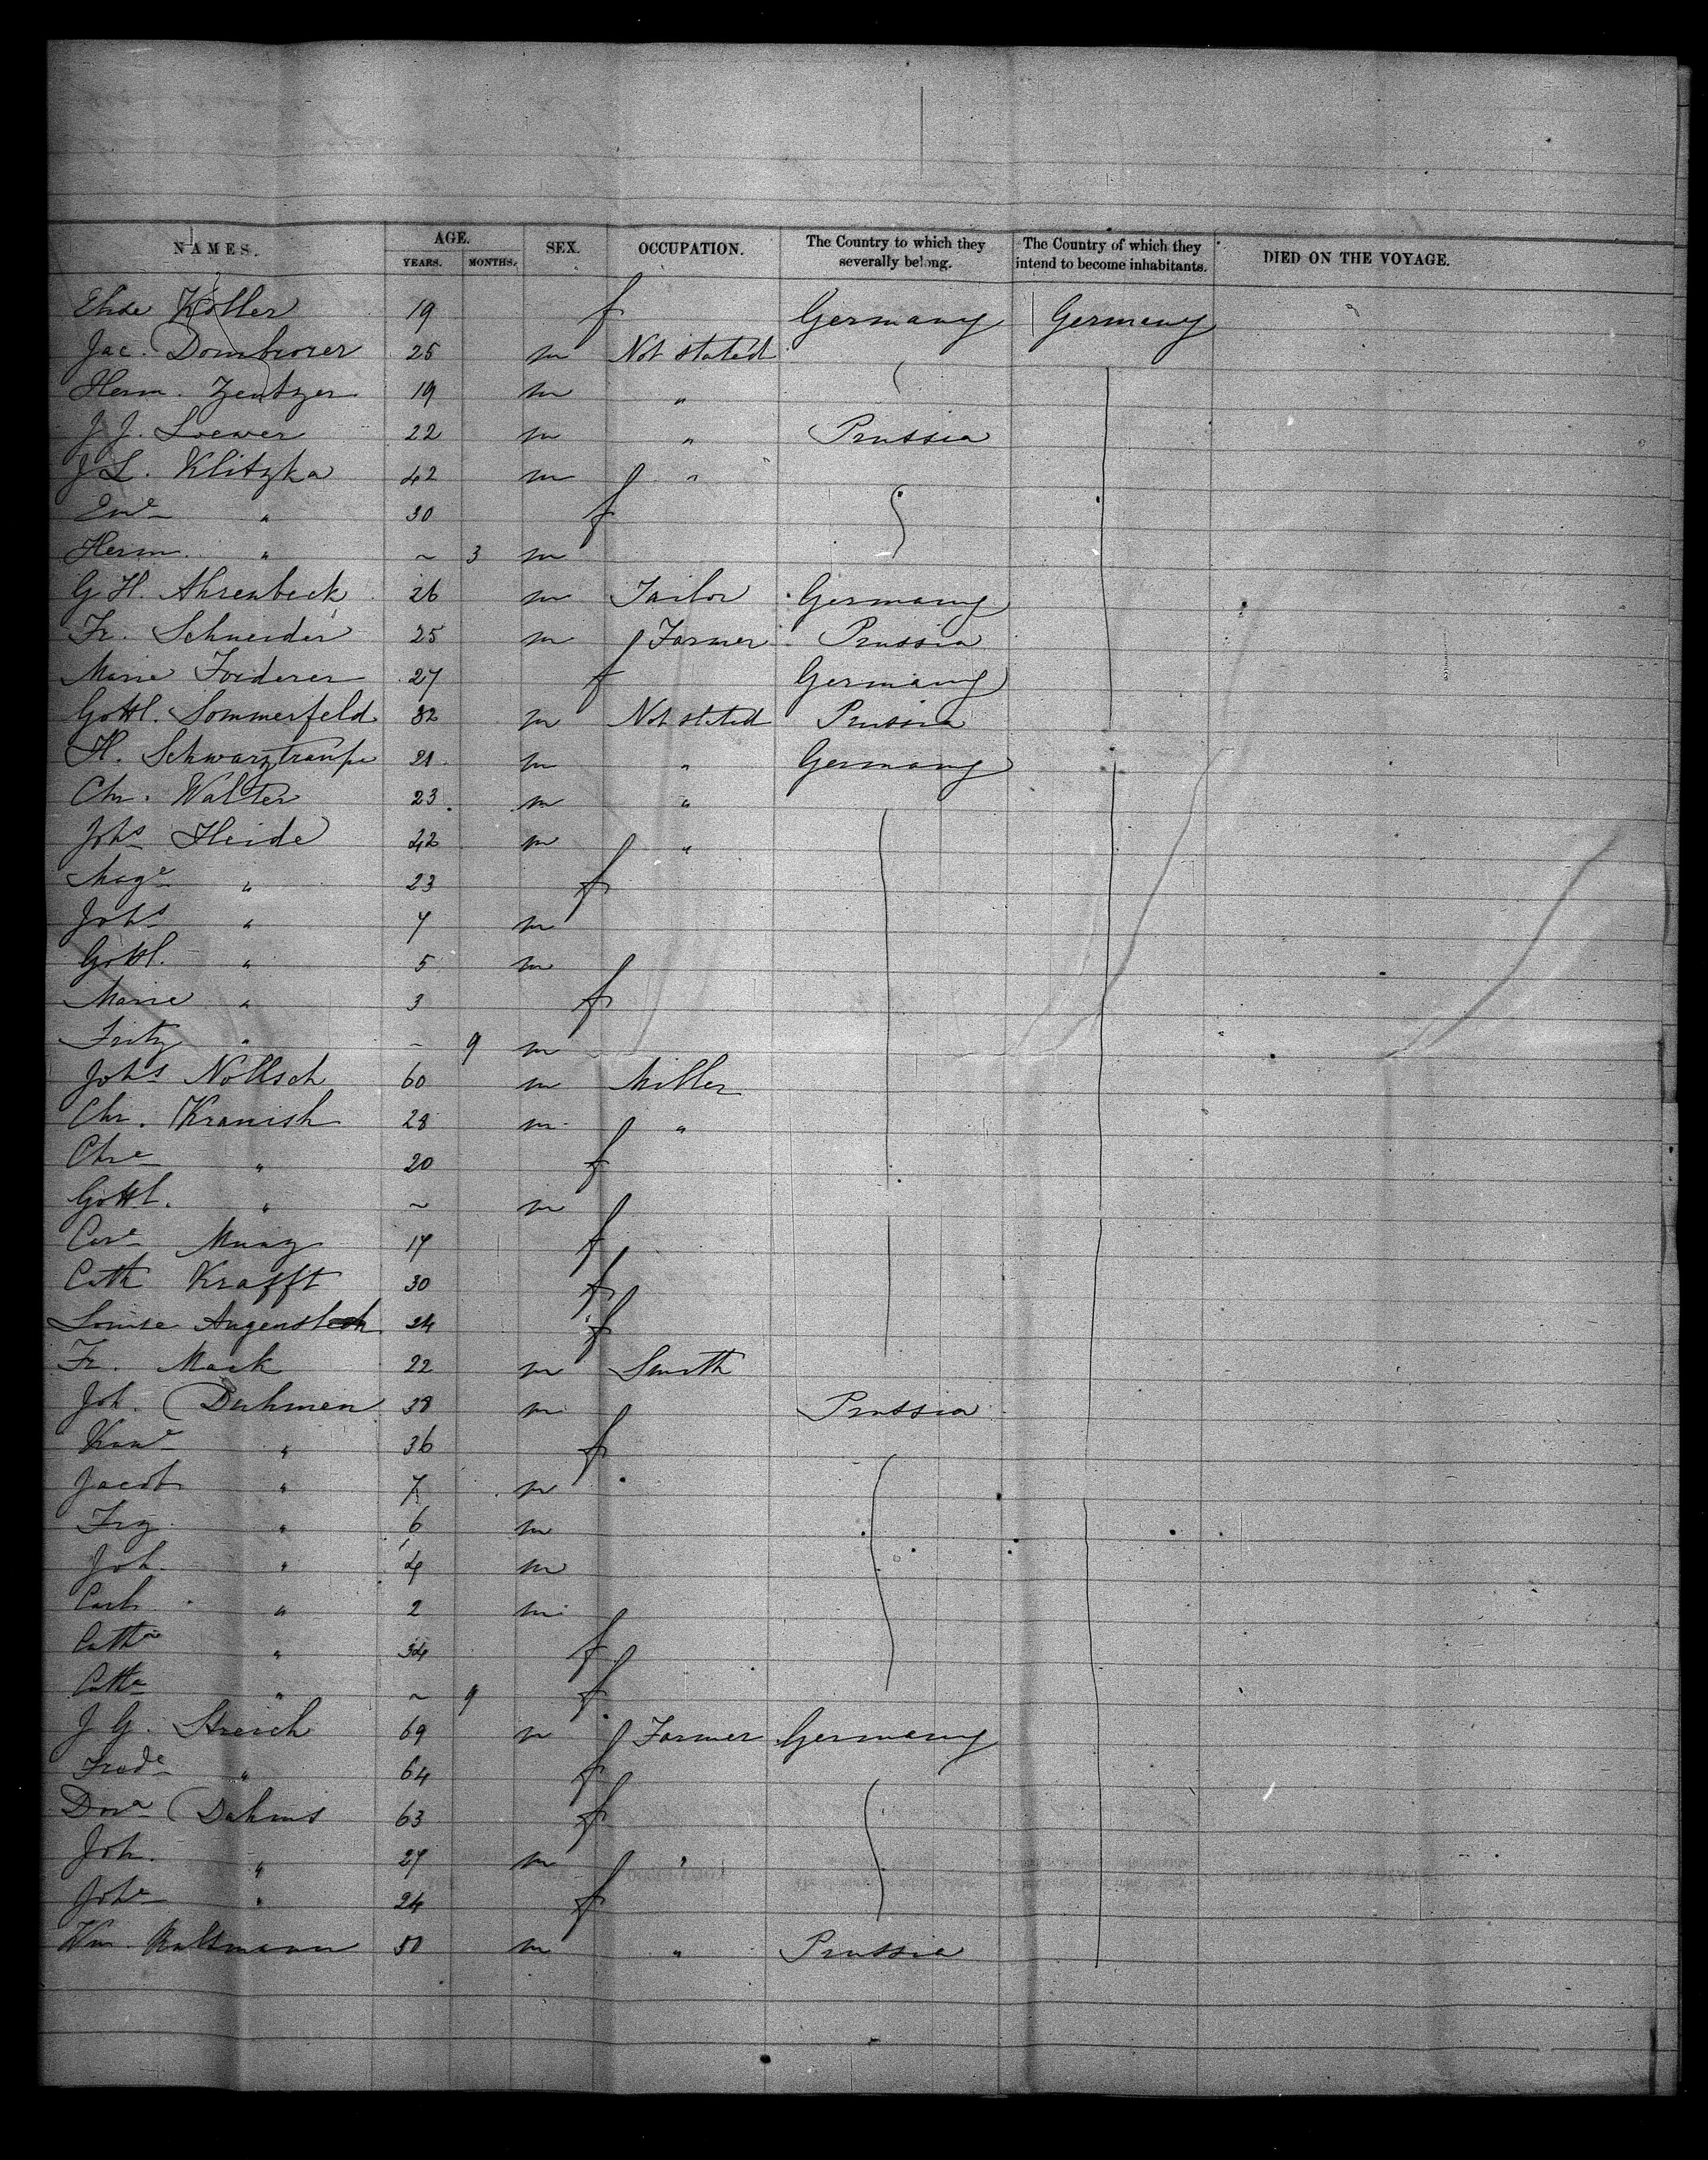 NAMES. AGE. SEX. OCCUPATION. The Country to which they severally belong. The Country of which they intend to become inhabitants. DIED ON THE VOYAGE.
YEARS. MONTHS.
Koller 19 f Germany Germany
Jac. Dombrorer 25 m Not stated
Herm. Zentzer 19 m "
J. J. Loewer 22 m " Prussia
J L. Klitzka 42 m "
" 30 f
Herm. " ~ 3 m
G H. Ahrenbeck 26 m Tailor Germany
Fr. Schneider 25 m Farmer Prussia
Marie Forderer 27 f Germany
Gottl. Sommerfeld 32 m Not stated Prussia
H. Schwarztraupe 21 m " Germany
Chr. Walter 23 m "
Johs Heide 42 m "
Mage " 23 f
Johs " 7 m
Gottl. " 5 m
Marie " 3 f
Fritz " ~ 9 m
Johs Nollsch 60 m Miller
Chr. Kranish 28 m "
Chre " 20 f
Gottl. " ~ m
Care Munz 17 f
Cath Krafft 30 f
Louise 24 f
Fr. Mack 22 m Smith
Joh. Duhmen 38 m Prussia
" 36 f
Jacob " 7 m
Frz. " 6 m
Joh. " 4 m
Carl " 2 m
Catha " 34 f
Catha " ~ 9 f
J G. Streich 69 m Farmer Germany
Frede " 64 f
Dora Dahms 63 f
Joh. " 27 m "
Joha " 24 f
Wm. 50 m " Prussia